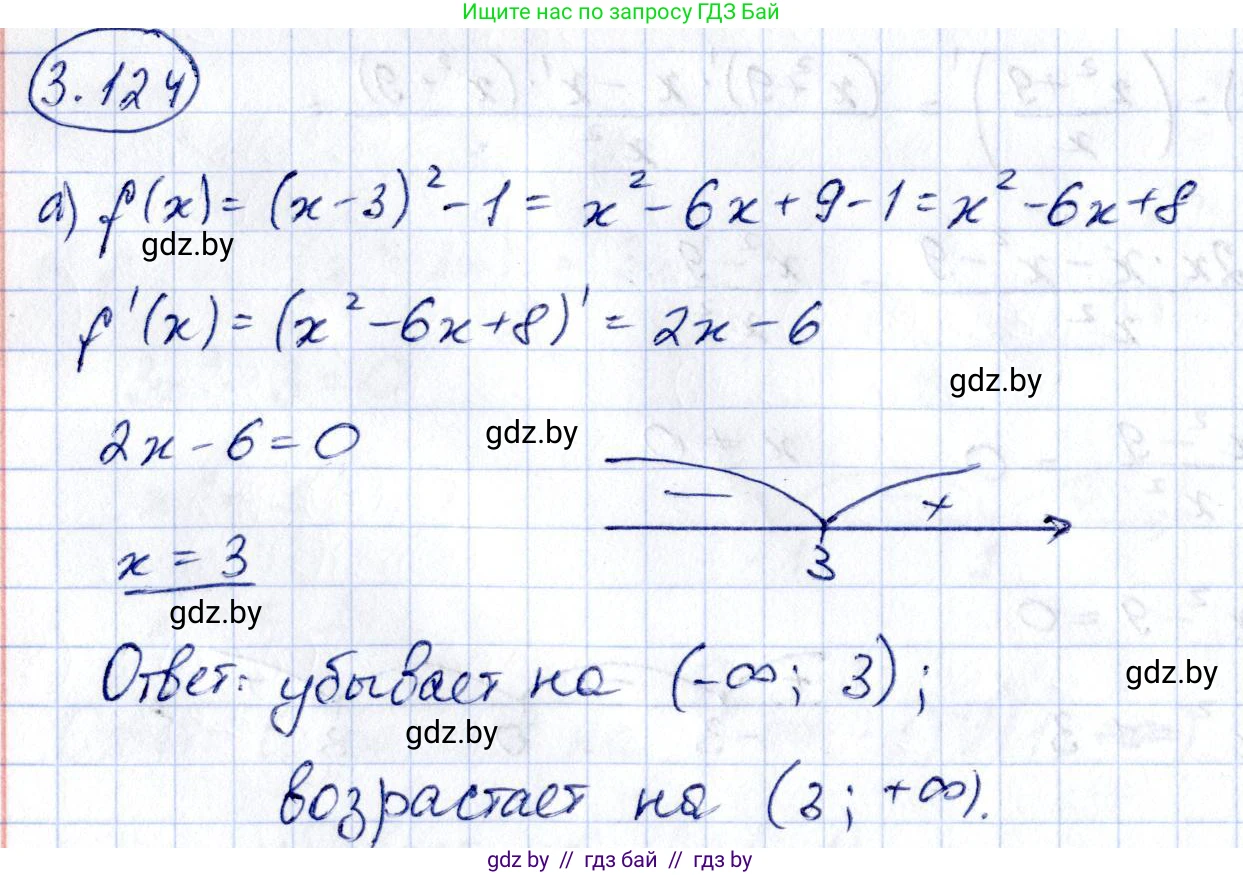 Ищите нас по запросу ГДЗ Бай
3.124
а) f(x) = (x-3)² - 1 = x² - 6x + 9 - 1 = x² - 6x + 8
gdz.by
f'(x) = (x² - 6x + 8)' = 2x - 6
gdz.by
2x - 6 = 0
gdz.by
− +
3
x = 3
gdz.by
Ответ: убывает на (-∞; 3);
gdz.by
gdz.by
возрастает на (3; +∞).
gdz.by // гдз бай // гдз by